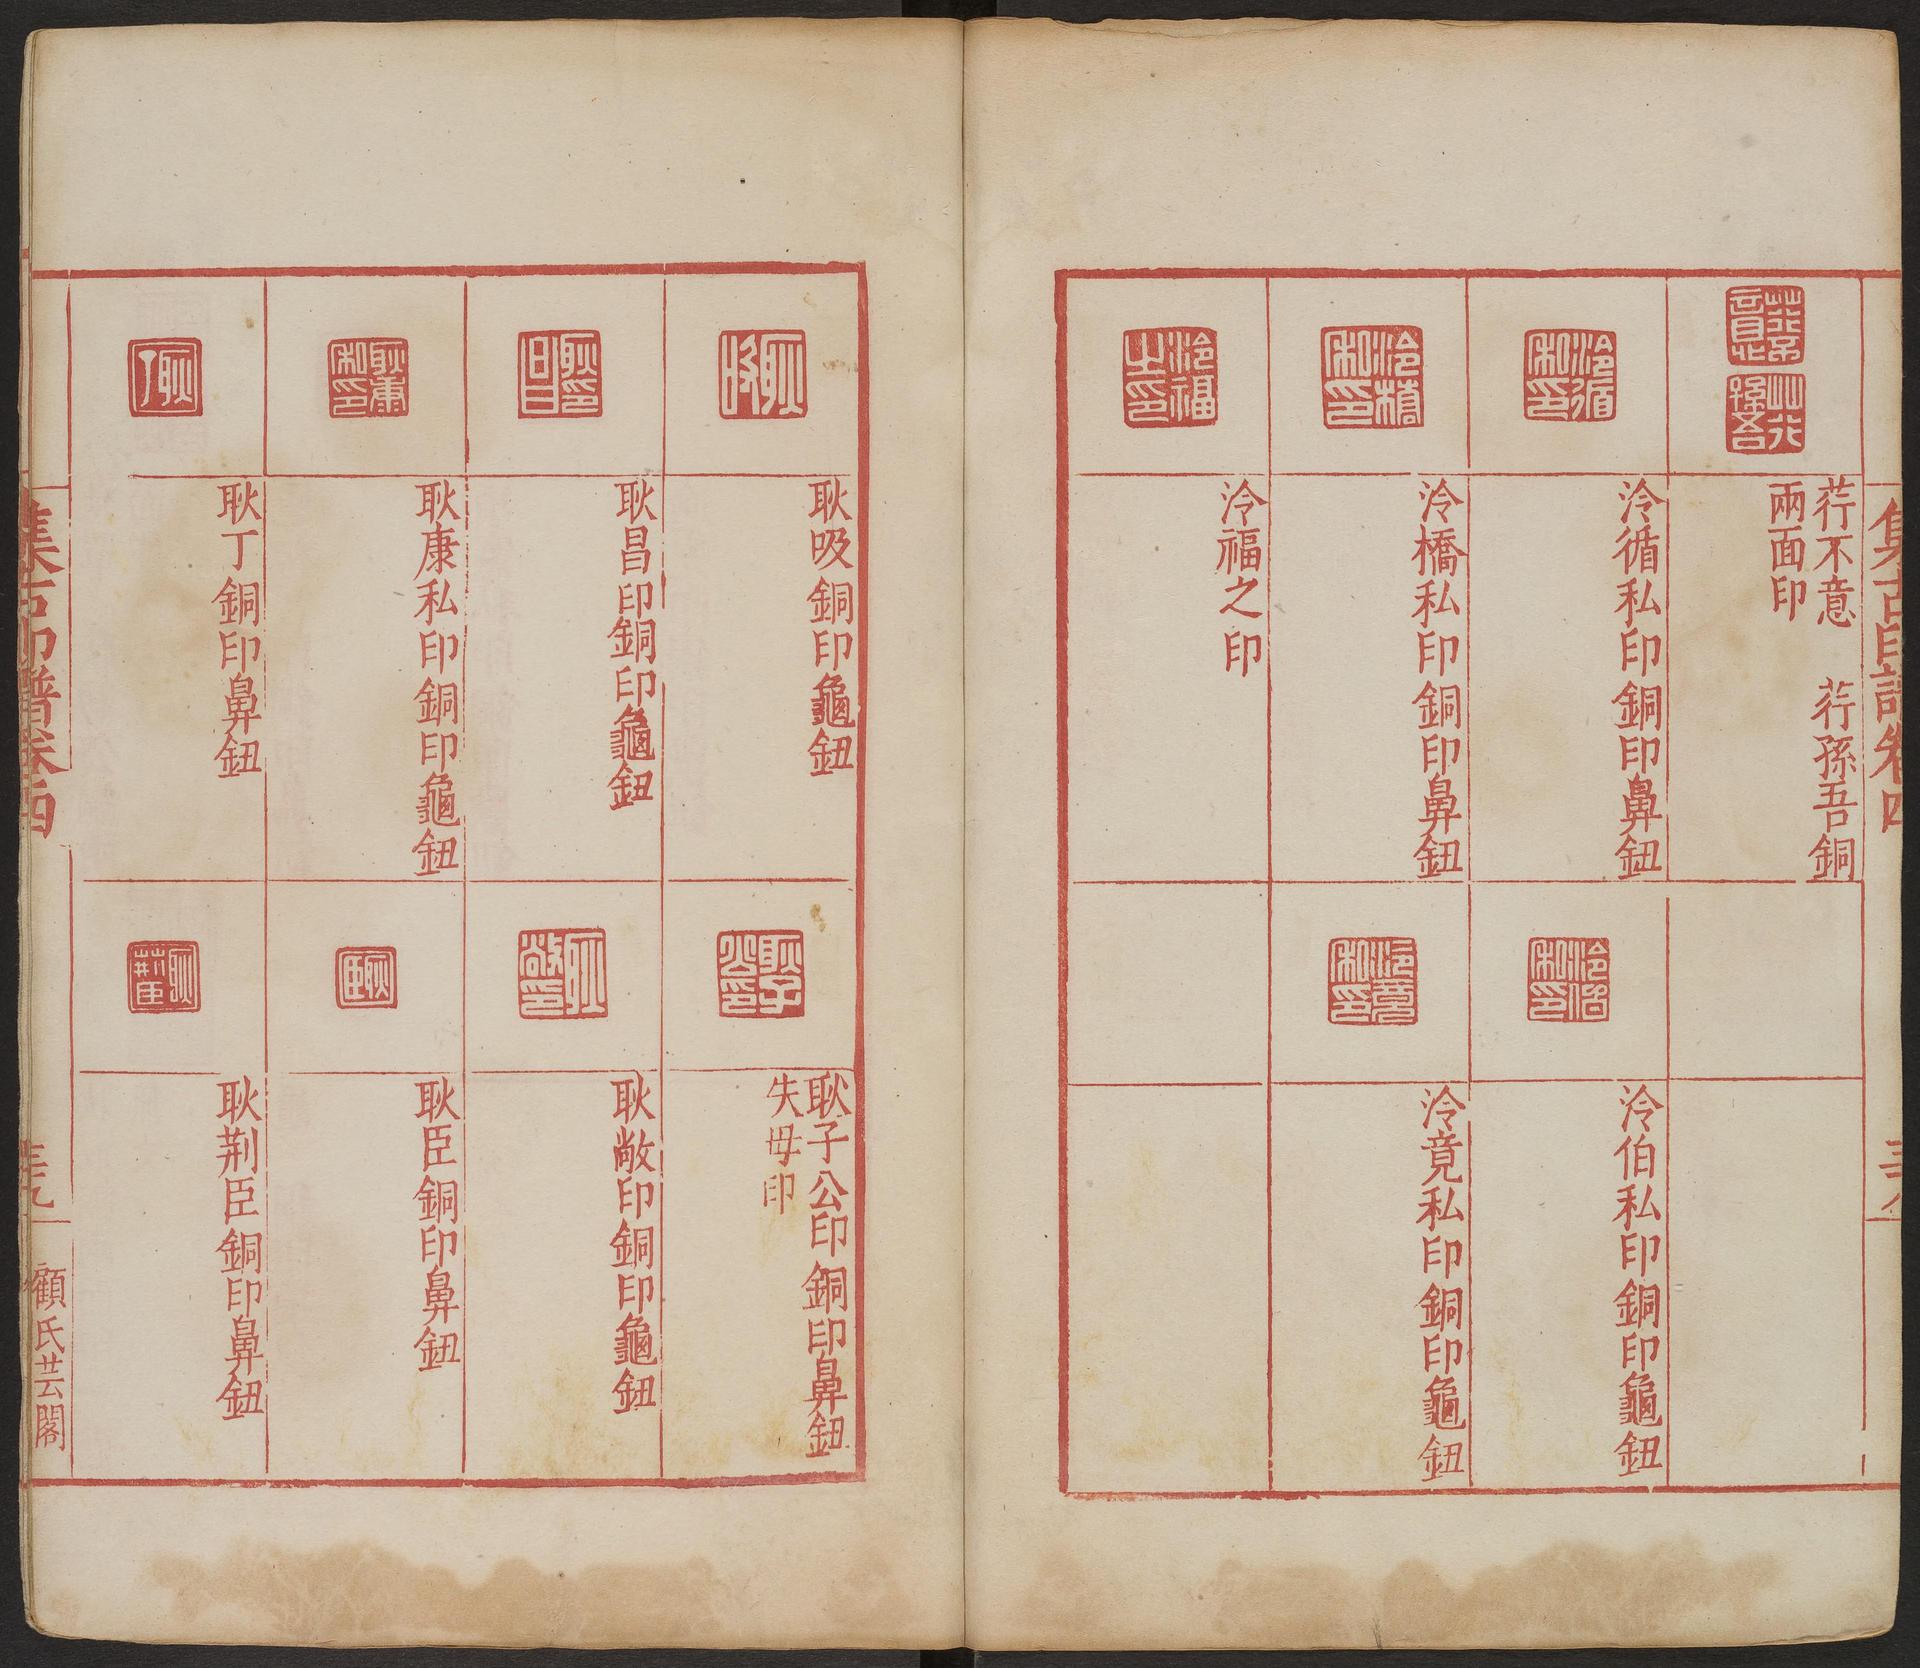 集古印譜卷四
荇不意　荇孫吾銅
兩面印
泠循私印銅印鼻鈕
泠橋私印銅印鼻鈕
泠福之印
泠伯私印銅印龜鈕
泠竟私印銅印龜鈕
耿吸銅印龜鈕
耿昌印銅印龜鈕
耿康私印銅印龜鈕
耿丁銅印鼻鈕
耿子公印銅印鼻鈕
失母印
耿敞印銅印龜鈕
耿臣銅印鼻鈕
耿荆臣銅印鼻鈕
集古印譜卷四
顧氏芸閣